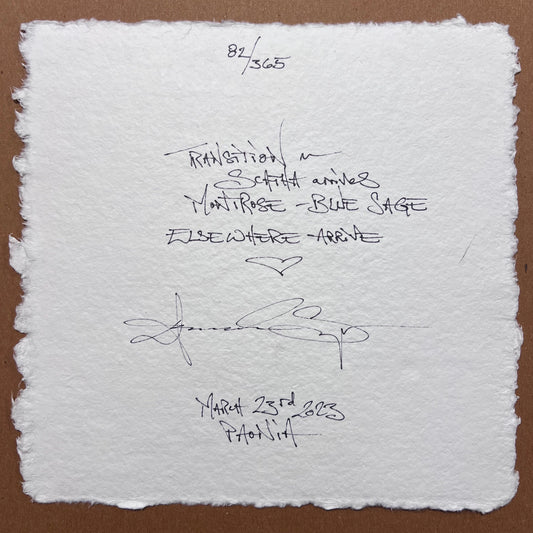 82/365
TRANSITION ~
arrives
MONTROSE - BLUE SAGE
ELSEWHERE - ARRIVE
♡
MARCH 23rd 2023
PAONIA